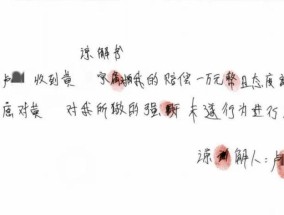 谅解书
卢 收到黄 家属 我的赔偿一万元整且态度
对黄 对我所做的强 未遂行为进行
谅 解人:卢